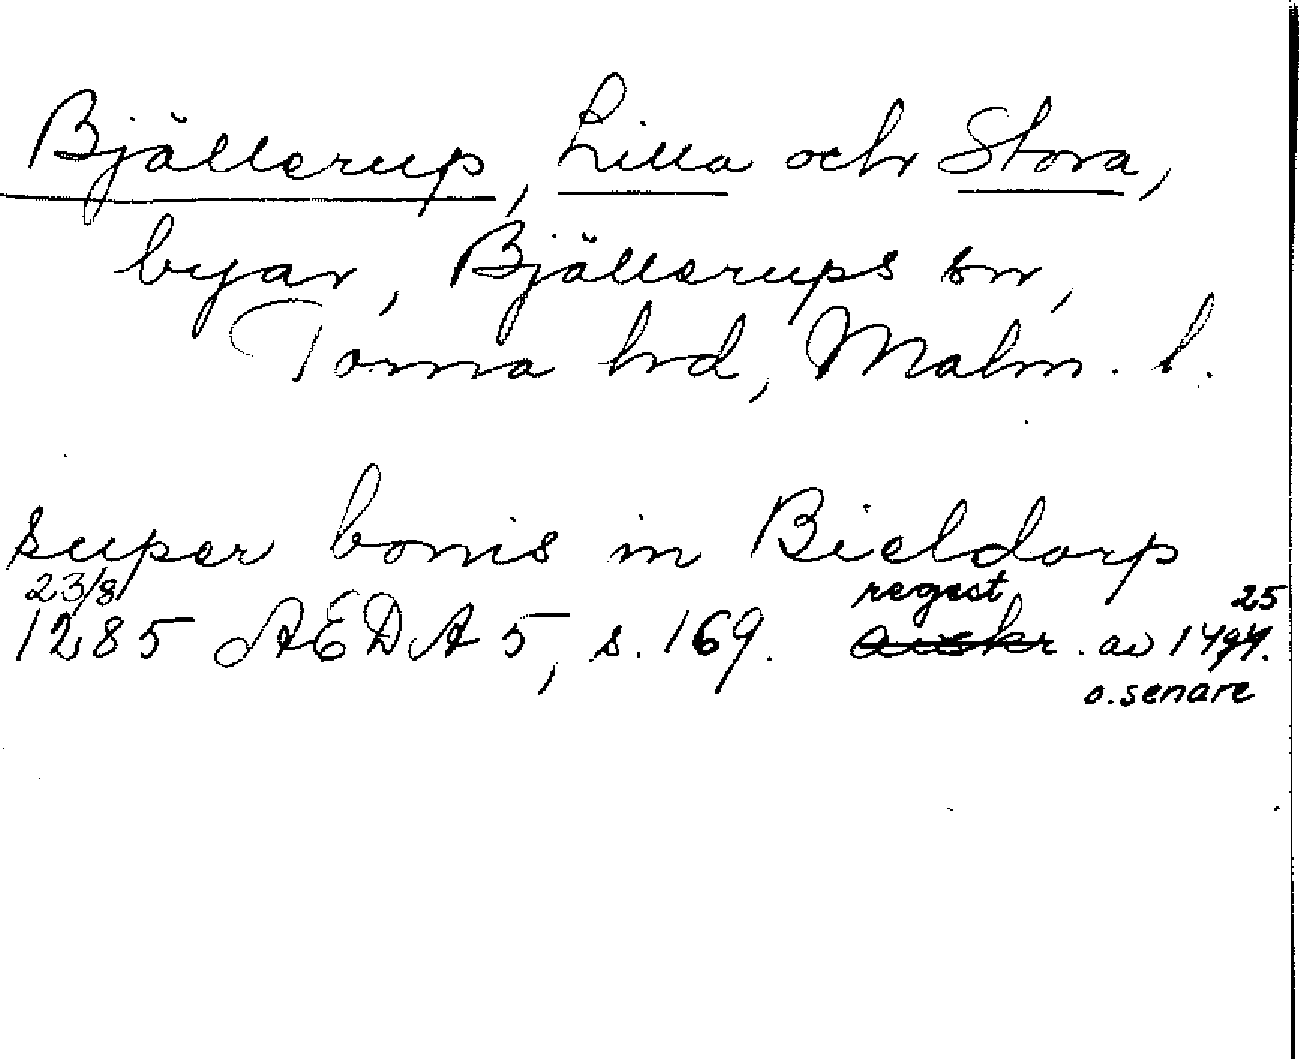 Bjällerup, Lilla och Stora,
byar, Bjällerups sn,
Torna hd, Malm. l.
super bonis in Bieldorp
23/8 regest 25
1285 AEDA 5, s. 169. avskr. av 1494.
o. senare